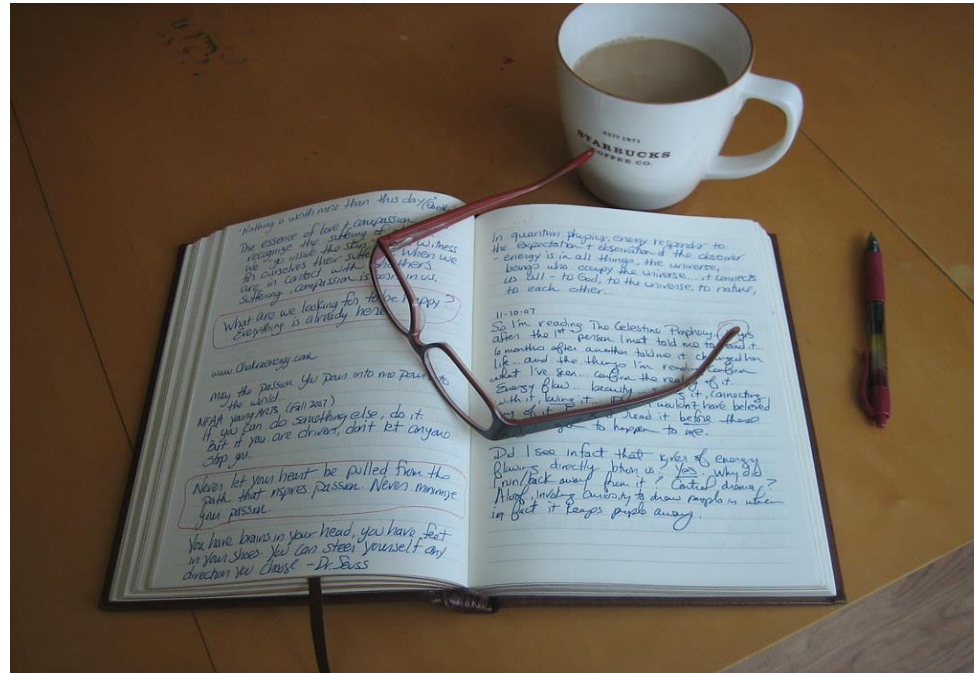 ESTD 1971
STARBUCKS
COFFEE CO.
Nothing is worth more than this day
The essence of love + compassion
recognize the suffering of
we go inside the skin witness
to ourselves their when we
are in contact with
suffering, compassion is born in us.
What are we looking for, to be happy?
Everything is already here
www.Chakraenergy.com
May the passion you pour into me pour to
the world...
NFAA Young Arts (Fall 2007)
If you can do something else, do it
But if you are driven, don't let anyone
stop you.
Never let your heart be pulled from the
path that inspires passion. Never minimize
your passion.
You have brains in your head, you have feet
in your shoes. You can steer yourself any
direction you choose - Dr. Seuss
In quantum physics, energy responds to
the expectation + observation of the observer
- energy is in all things, the universe,
beings who occupy the universe... it connects
us all - to God, to the universe, to nature,
to each other...
11-10-07
So I'm reading The Celestine Prophecy
after the 1st person I met told me to read it
6 months after another told me it changed her
life... and the things I'm reading confirm
what I've seen... confirm the reality of it..
Energy flow... beauty it, connecting
with it, loving it... wouldn't have believed
any of it read it before these
to happen to me.
Did I see in fact that of energy
flowing directly btwn us? Yes. Why did
I run/back away from it? Control drama?
Aloof, involving curiosity to draw people in when
in fact it keeps people away.